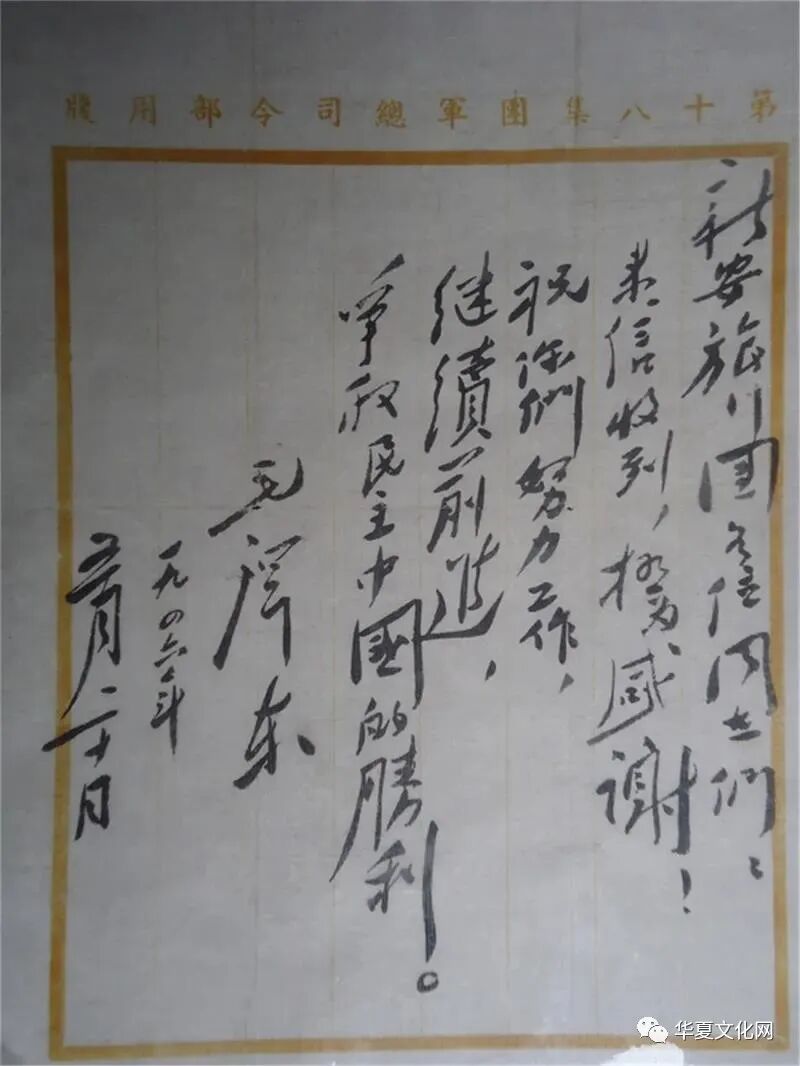 第十八集團軍總司令部用牋
新安旅行團各位同志們：
来信收到，極為感謝！
祝你們努力工作，
继續前進，
爭取民主中國的勝利。
毛澤东
一九四六年
五月二十日
华夏文化网